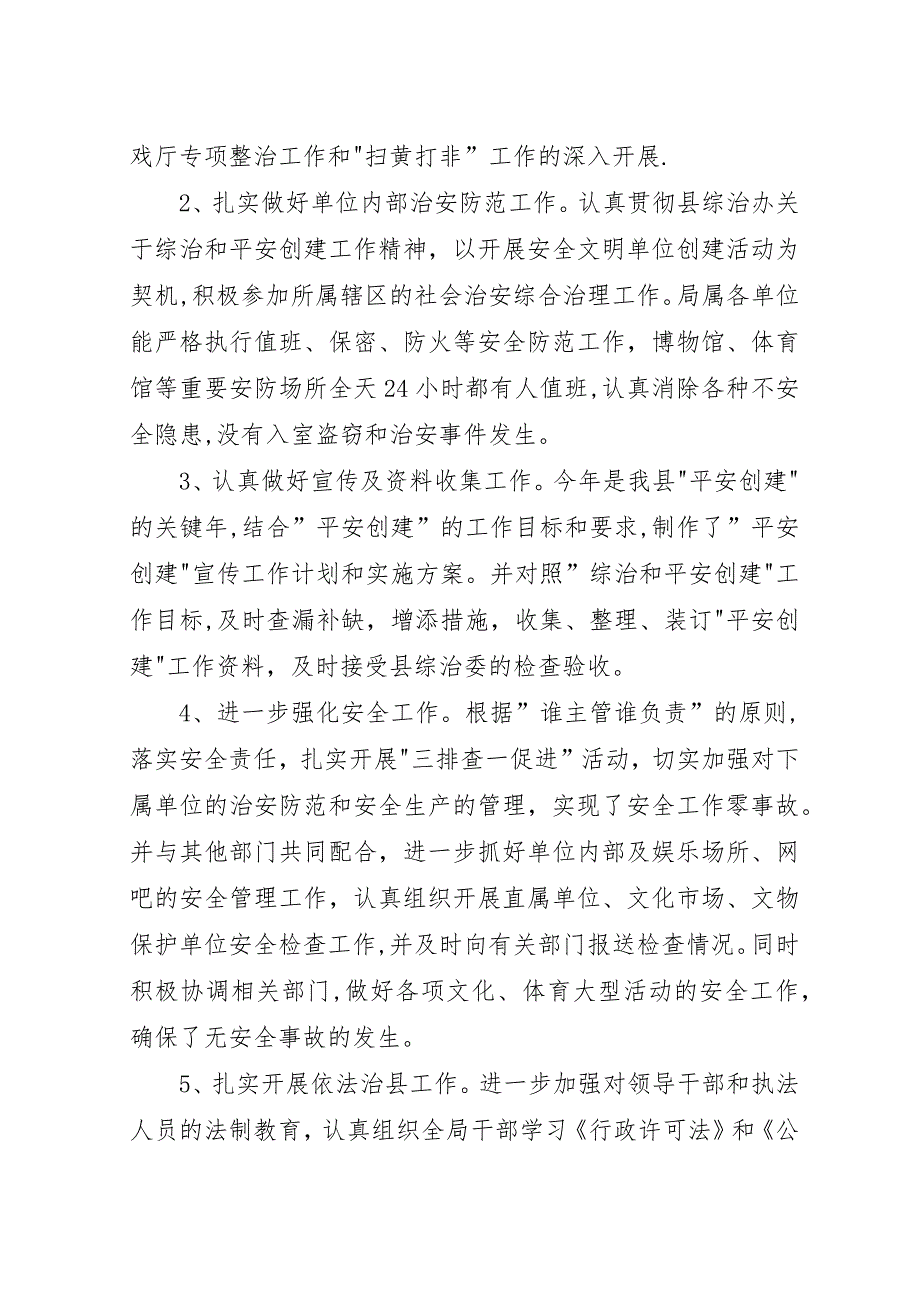 戏厅专项整治工作和"扫黄打非”工作的深入开展.
2、扎实做好单位内部治安防范工作。认真贯彻县综治办关
于综治和平安创建工作精神，以开展安全文明单位创建活动为
契机,积极参加所属辖区的社会治安综合治理工作。局属各单位
能严格执行值班、保密、防火等安全防范工作，博物馆、体育
馆等重要安防场所全天 24 小时都有人值班,认真消除各种不安
全隐患,没有入室盗窃和治安事件发生。
3、认真做好宣传及资料收集工作。今年是我县"平安创建"
的关键年,结合”平安创建”的工作目标和要求,制作了”平安
创建"宣传工作计划和实施方案。并对照”综治和平安创建"工
作目标,及时查漏补缺，增添措施，收集、整理、装订"平安创
建"工作资料，及时接受县综治委的检查验收。
4、进一步强化安全工作。根据”谁主管谁负责”的原则,
落实安全责任，扎实开展"三排查一促进”活动，切实加强对下
属单位的治安防范和安全生产的管理，实现了安全工作零事故。
并与其他部门共同配合，进一步抓好单位内部及娱乐场所、网
吧的安全管理工作，认真组织开展直属单位、文化市场、文物
保护单位安全检查工作,并及时向有关部门报送检查情况。同时
积极协调相关部门,做好各项文化、体育大型活动的安全工作,
确保了无安全事故的发生。
5、扎实开展依法治县工作。进一步加强对领导干部和执法
人员的法制教育，认真组织全局干部学习《行政许可法》和《公